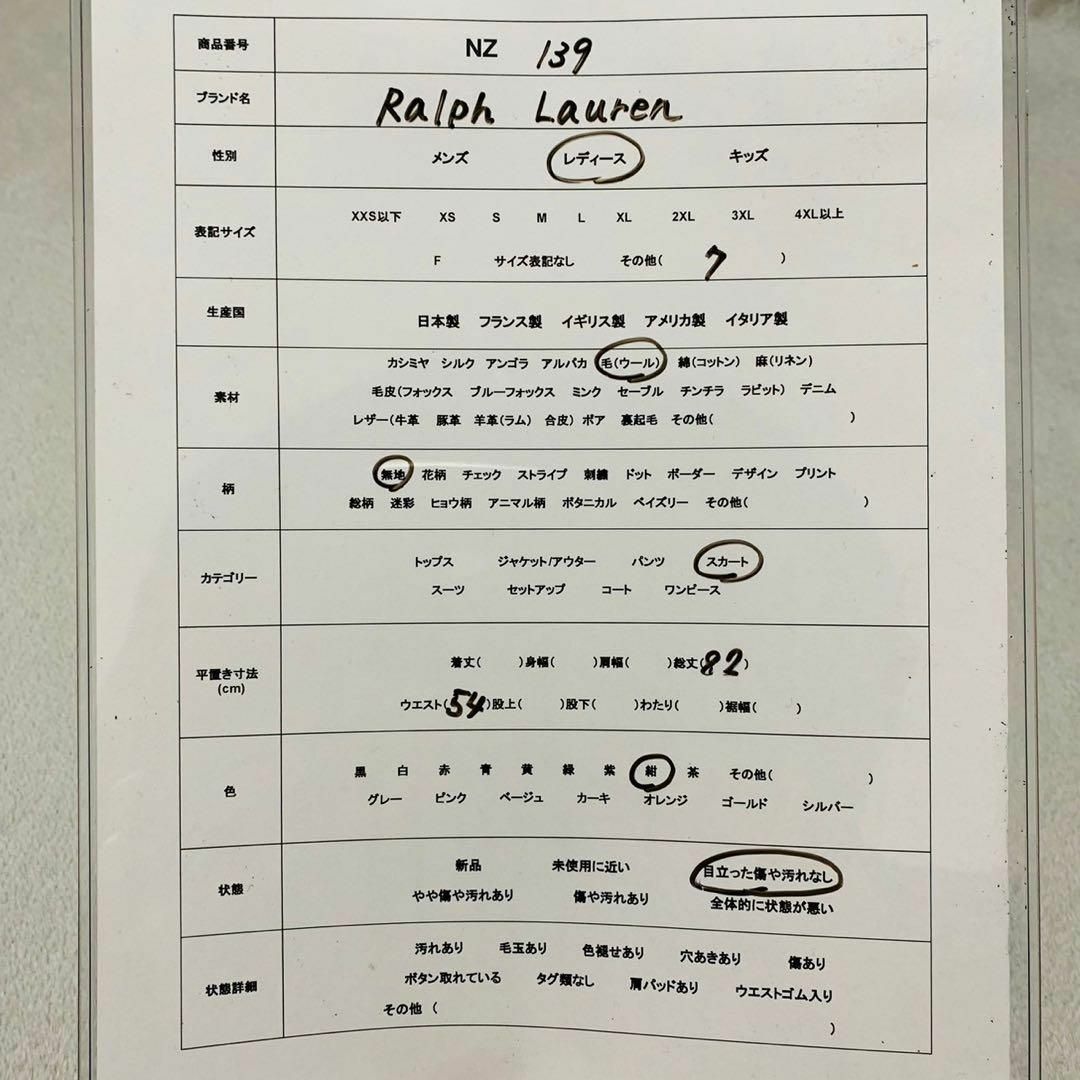 商品番号 NZ 139
ブランド名 Ralph Lauren
性別 メンズ レディース キッズ
XXS以下 XS S M L XL 2XL 3XL 4XL以上
表記サイズ
F サイズ表記なし その他( 7 )
生産国 日本製 フランス製 イギリス製 アメリカ製 イタリア製
カシミヤ シルク アンゴラ アルパカ 毛(ウール) 綿(コットン) 麻(リネン)
素材 毛皮(フォックス ブルーフォックス ミンク セーブル チンチラ ラビット) デニム
レザー(牛革 豚革 羊革(ラム) 合皮) ボア 裏起毛 その他( )
柄 無地 花柄 チェック ストライプ 刺繍 ドット ボーダー デザイン プリント
総柄 迷彩 ヒョウ柄 アニマル柄 ボタニカル ペイズリー その他( )
カテゴリー トップス ジャケット/アウター パンツ スカート
スーツ セットアップ コート ワンピース
平置き寸法 着丈( )身幅( )肩幅( )総丈(82)
(cm) ウエスト(54)股上( )股下( )わたり( )裾幅( )
色 黒 白 赤 青 黄 緑 紫 紺 茶 その他( )
グレー ピンク ベージュ カーキ オレンジ ゴールド シルバー
状態 新品 未使用に近い 目立った傷や汚れなし
やや傷や汚れあり 傷や汚れあり 全体的に状態が悪い
汚れあり 毛玉あり 色褪せあり 穴あきあり 傷あり
状態詳細 ボタン取れている タグ類なし 肩パッドあり ウエストゴム入り
その他 ( )